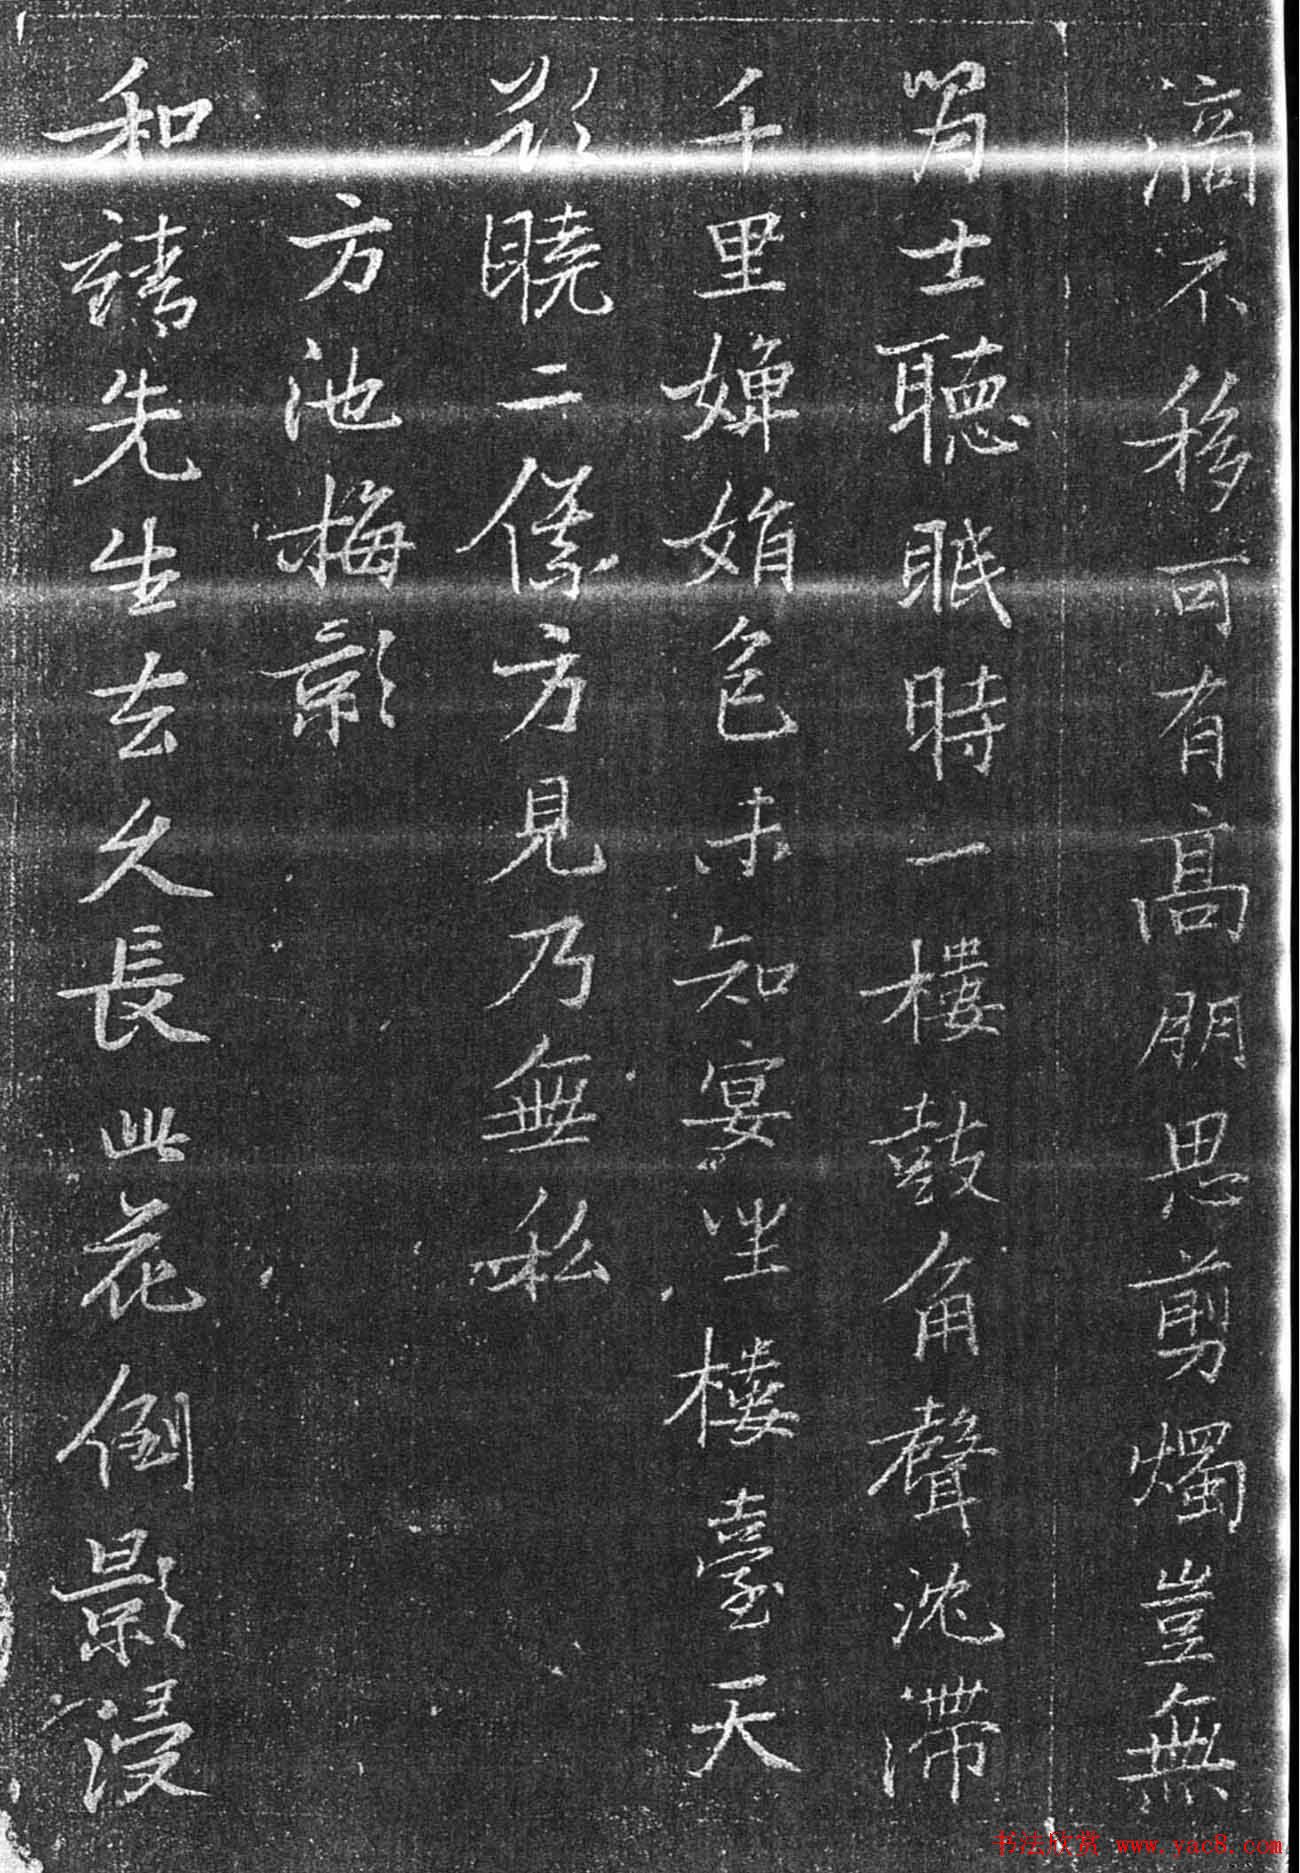 滴不移可有高朋思剪燭豈無
胃士聽眠時一樓鼓角聲沈滯
千里嬋娟色未知宴坐樓臺天
欲曉二儀方見乃無私
方池梅影
和靖先生去久長此花倒影浸
书法欣赏 www.yac8.com